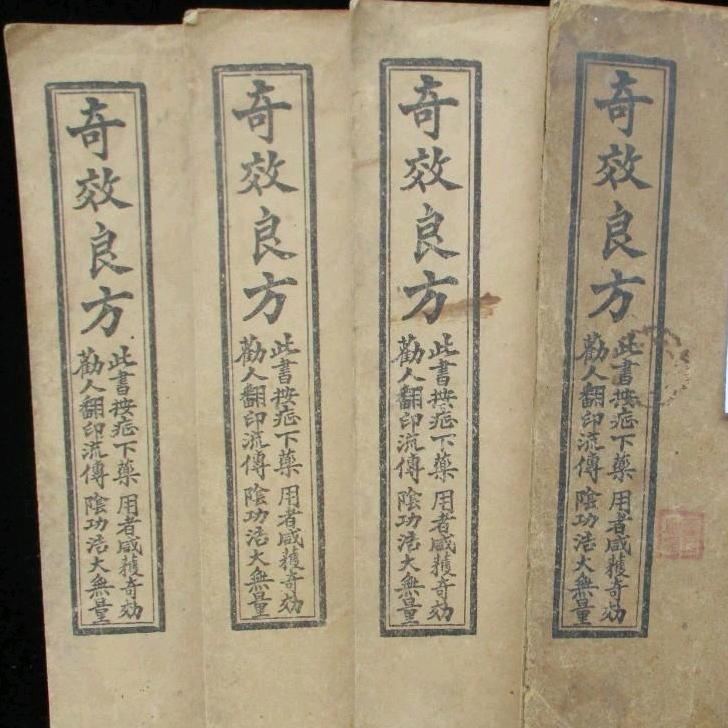 奇效良方
此書按症下藥 用者咸獲奇効
勸人翻印流傳 陰功浩大無量
奇效良方
此書按症下藥 用者咸獲奇効
勸人翻印流傳 陰功浩大無量
奇效良方
此書按症下藥 用者咸獲奇効
勸人翻印流傳 陰功浩大無量
奇效良方
此書按症下藥 用者咸獲奇効
勸人翻印流傳 陰功浩大無量